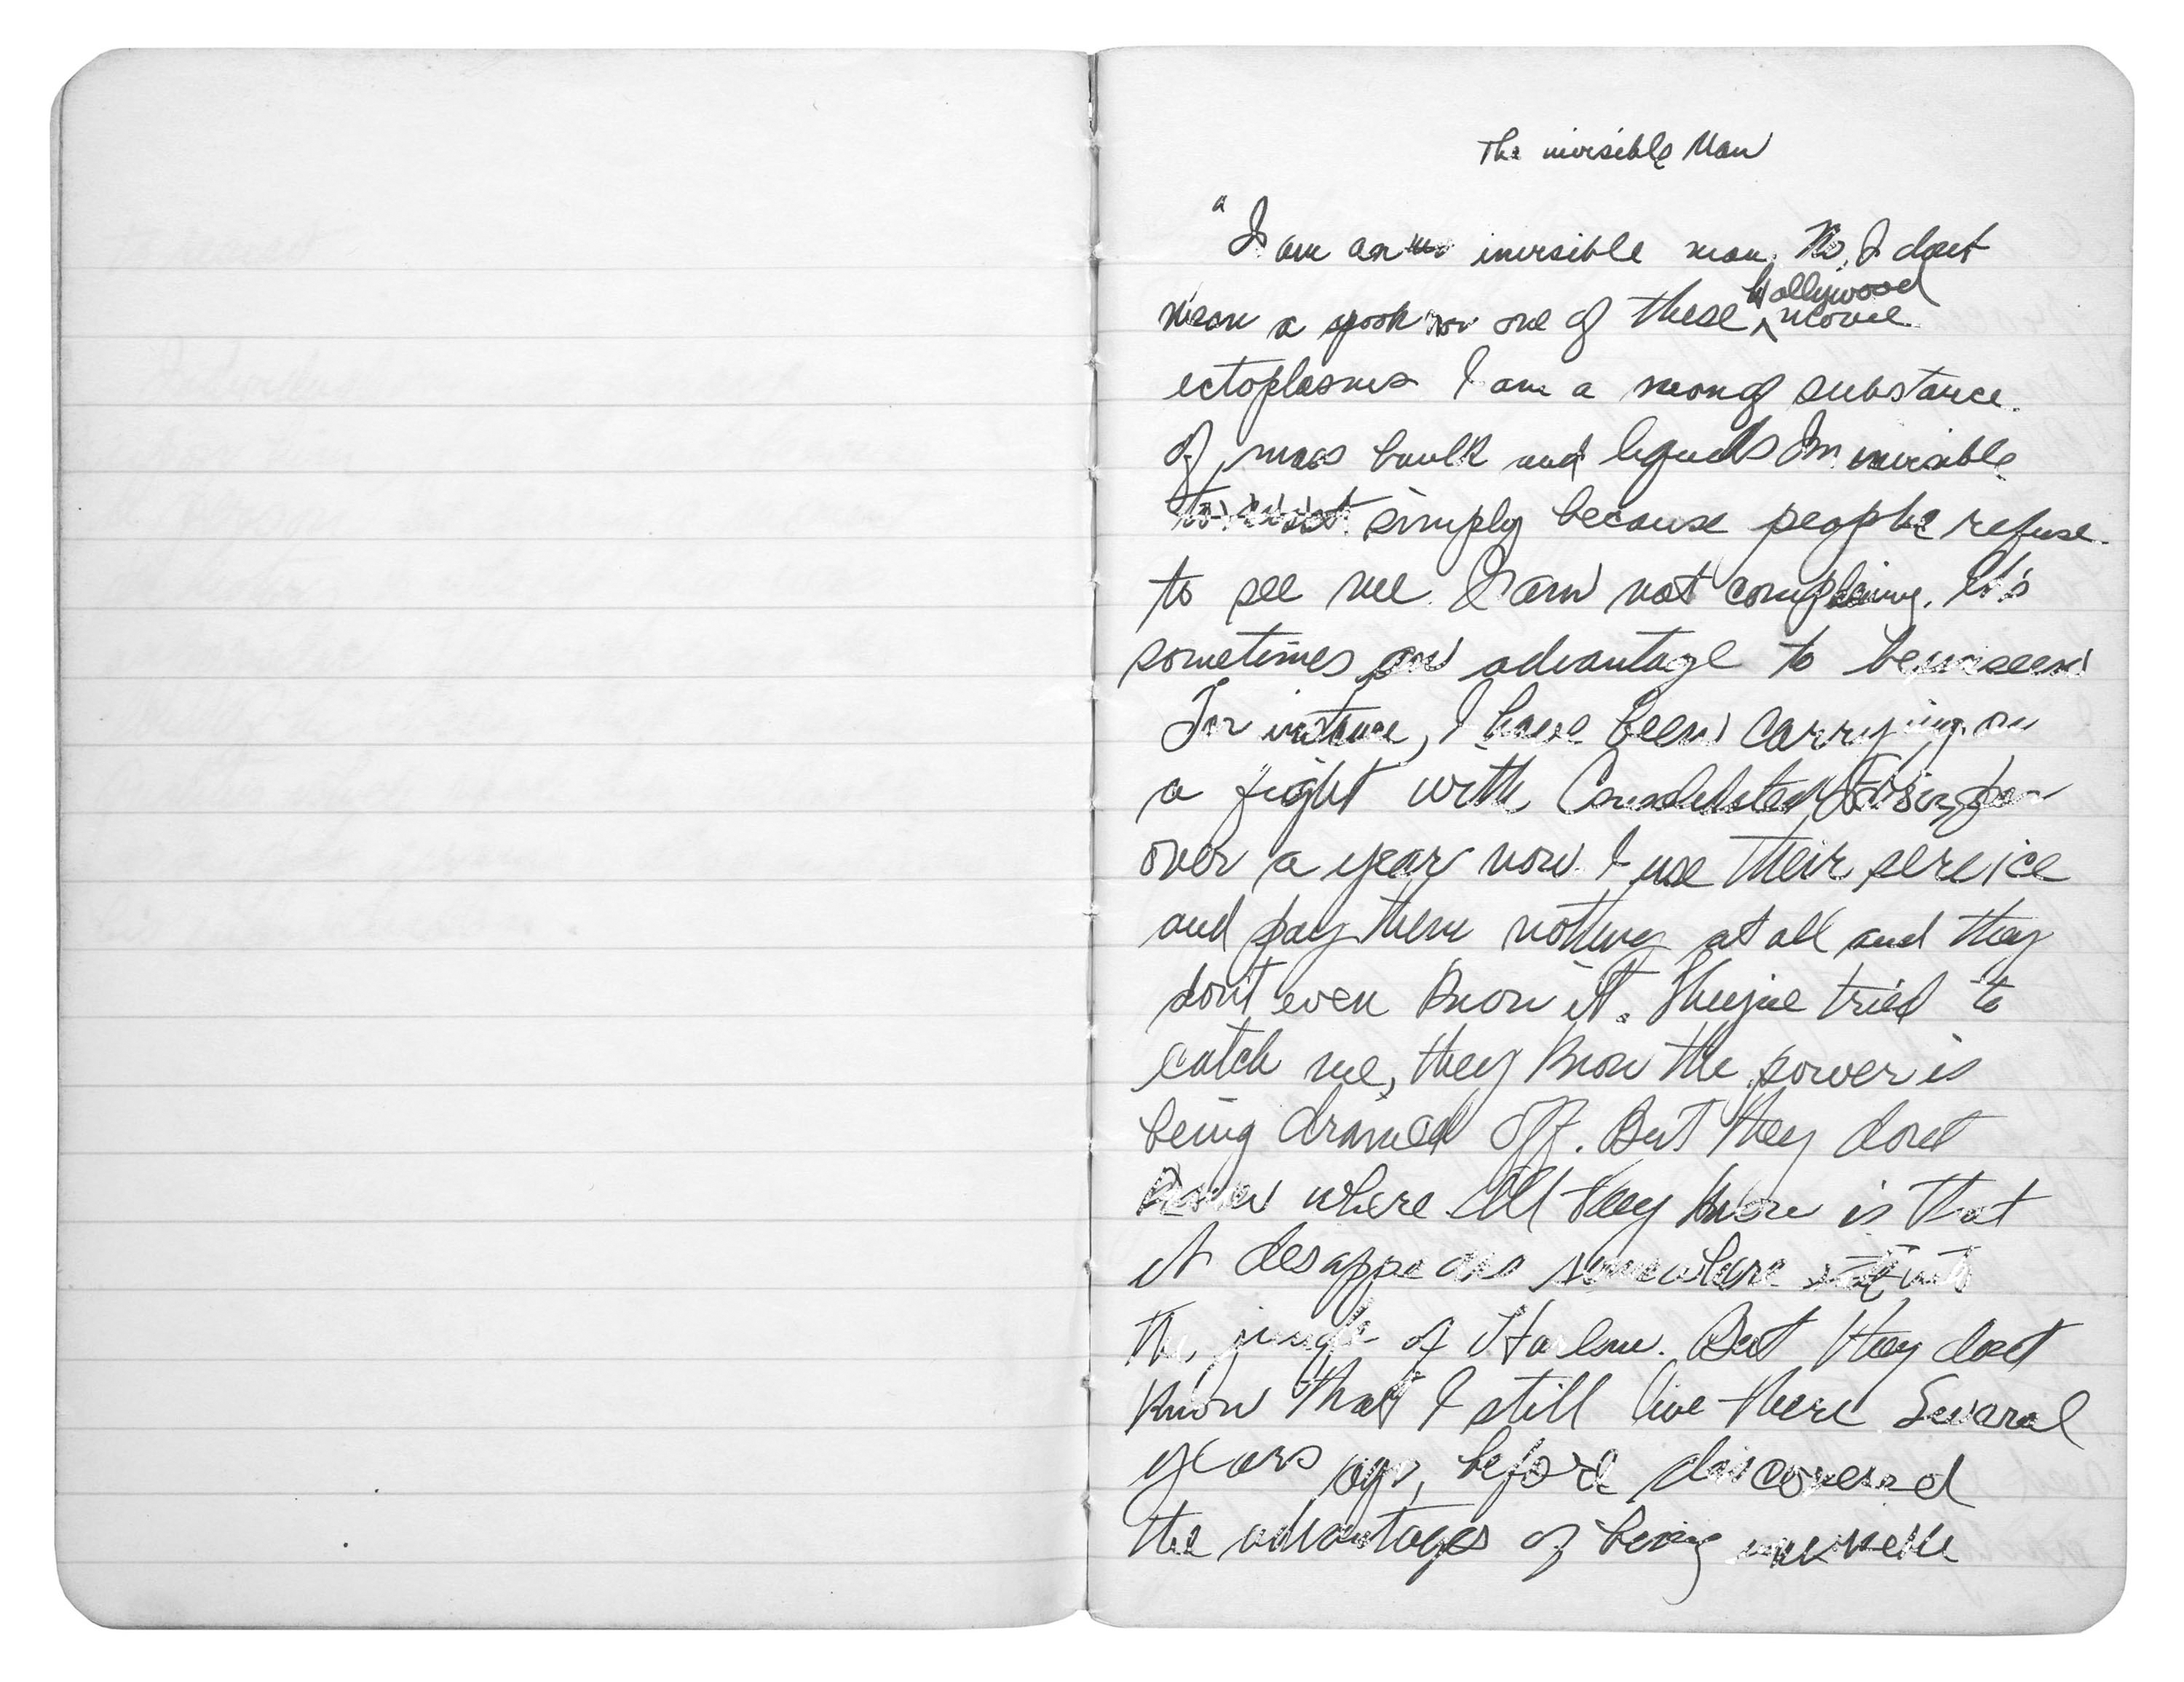 The invisible Man
"I am an invisible man. No, I dont
mean a spook or one of these Hollywood movie
ectoplasms I am a man of substance.
Of, mass baulk and liquids Im invisible
simply because people refuse
to see me. I am not complaining. It's
sometimes an advantage to be unseen
For instance, I have been carrying on
a fight with Consolidated Edison for
over a year now. I use their service
and pay them nothing at all and they
don't even know it. They've tried to
catch me, they know the power is
being drained off. But they dont
know where. All they know is that
it desappears somewhere into
the jungle of Harlem. But they dont
know that I still live there Several
years ago, before discovered
the advantages of being